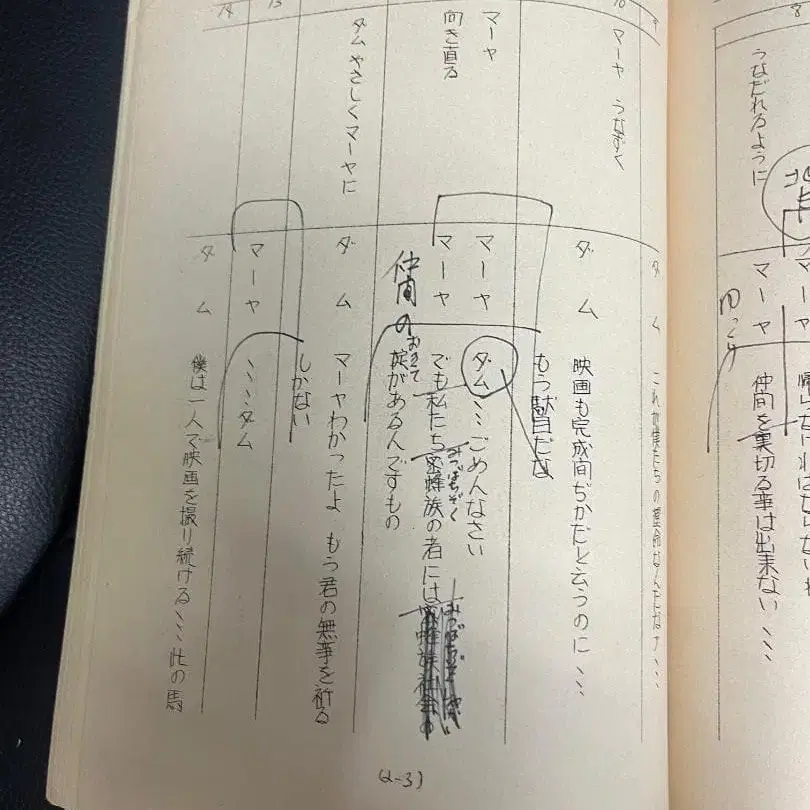 8
うなだれるように
マーヤ
マーヤ
ゆっくり
仲間を裏切る事は出来ない、、、
9
10
13
14
マーヤ うなずく
マーヤ
向き直る
ダムやさしくマーヤに
ダム
ダム
映画も完成間ぢかだと云うのに、、、
もう駄目だな
マーヤ
ダム、、、ごめんなさい
マーヤ
でも私たち蜜蜂族の者には
みつばちぞく
仲間の
おきて
掟があるんですもの
ダム
マーヤわかったよ もう君の無事を祈る
しかない
マーヤ
、、、ダム
ダム
僕は一人で映画を撮り続ける、、、此の馬
(2-3)